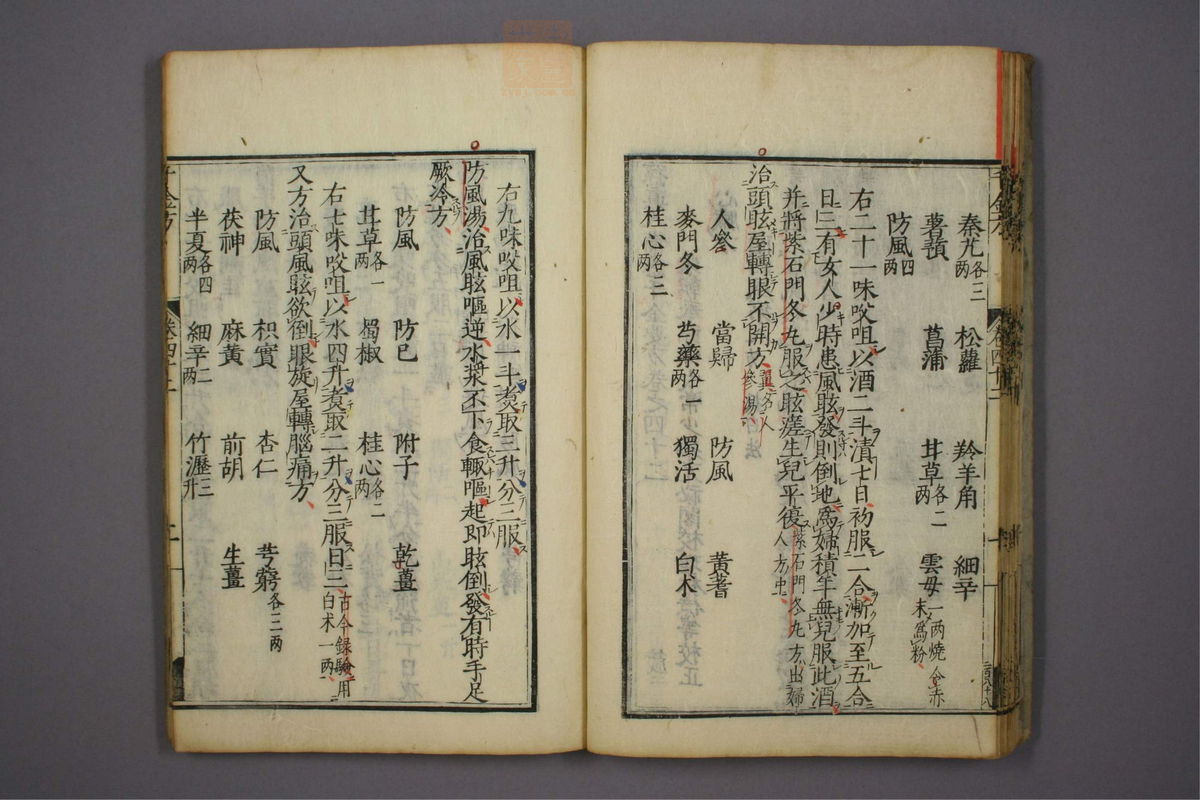 秦艽各三兩 松蘿 羚羊角 細辛
薯蕷 菖蒲 甘草各二兩 雲母一兩燒令赤末爲粉
防風四兩
右二十一味㕮咀以酒二斗漬七日初服一合漸加至五合
日三有女人少時患風眩發則倒地爲婦積年無兒服此酒
并將紫石門冬丸服之眩瘥生兒平復紫石門冬丸方出婦人方中
治頭眩屋轉眼不開方翼名人參湯
人參 當歸 防風 黃耆
麥門冬 芍藥各一兩 獨活 白朮
桂心各三兩
右九味㕮咀以水一斗煑取三升分三服
防風湯治風眩嘔逆水漿不下食輒嘔起即眩倒發有時手足
厥冷方
防風 防己 附子 乾薑
甘草各一兩 蜀椒 桂心各二兩
右七味㕮咀以水四升煑取二升分三服日三古今錄驗用白朮一兩
又方治頭風眩欲倒眼旋屋轉腦痛方
防風 枳實 杏仁 芎藭各三兩
茯神 麻黃 前胡 生薑
半夏各四兩 細辛二兩 竹瀝三升